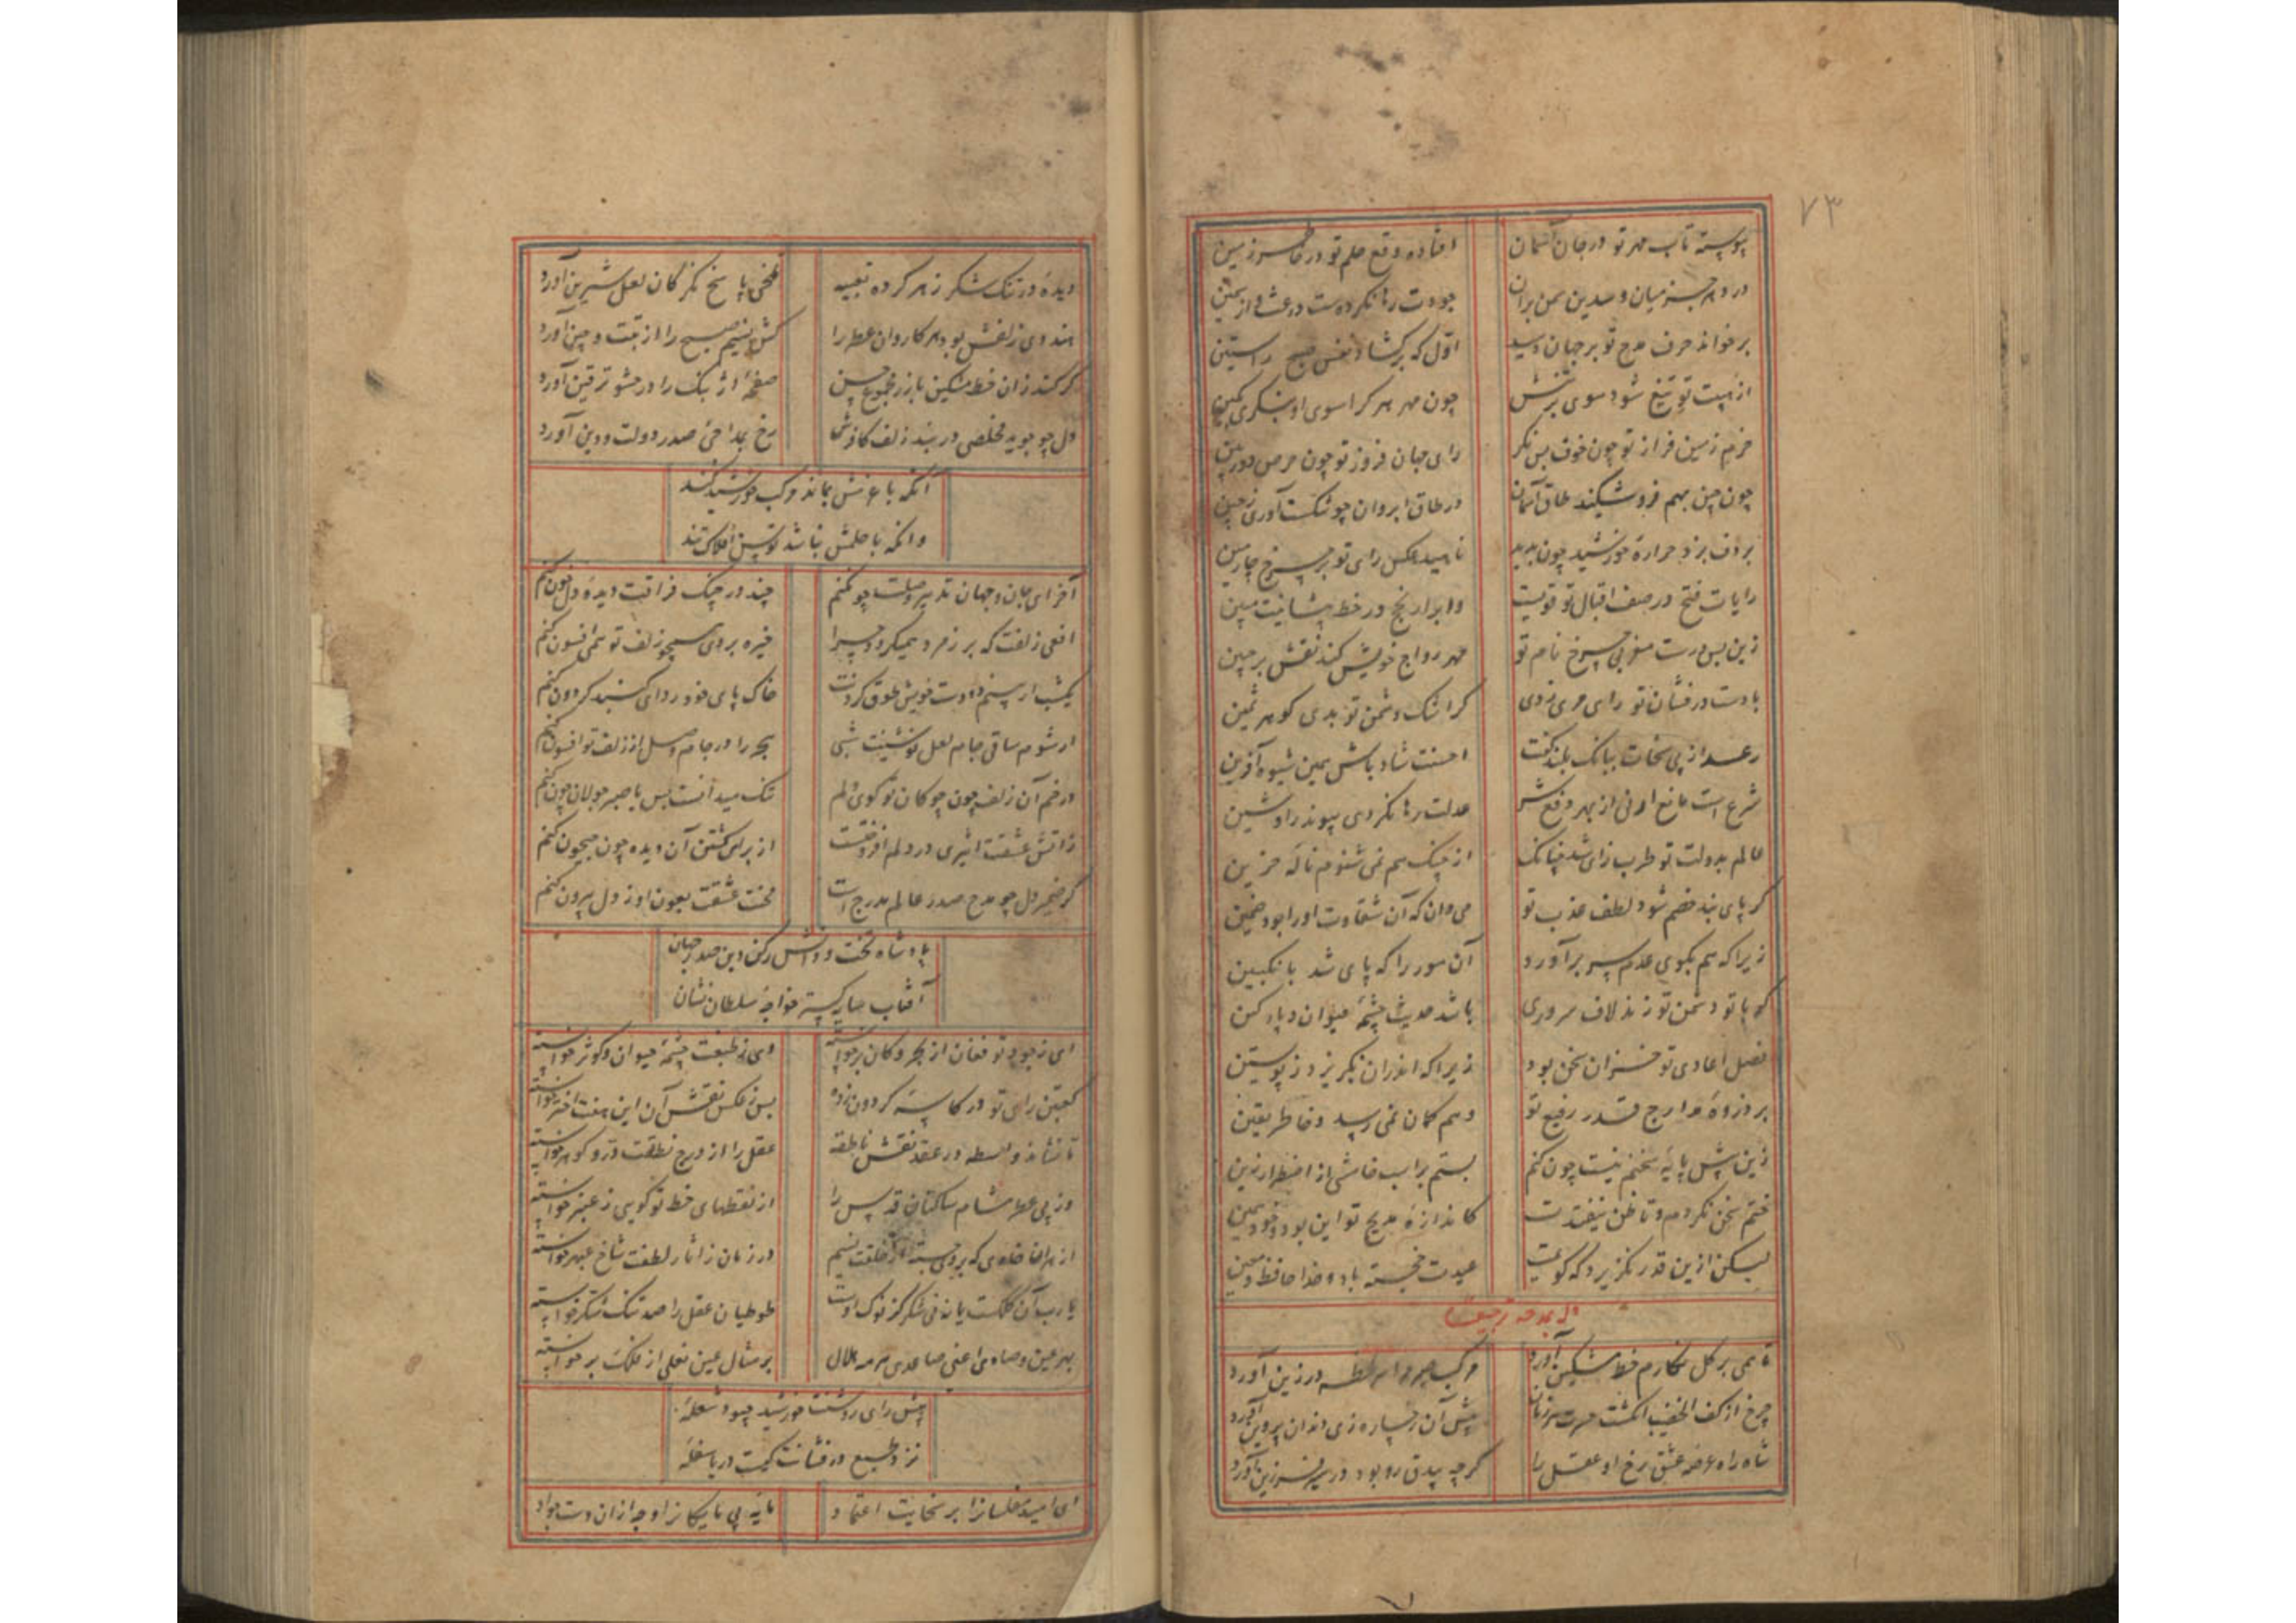 ۷۳
پیوسته تاب مهر تو در جان آسمان افتاده وقع حلم تو در خاطر زمین
در دهر جز میان و سرین سمن بران جودت رها نکردست
برخواند حرف مدح تو بر جهان دمید اول که برگشاد نفس صبح راستین
از هیبت تو تیغ شود موی بر تنش چون مهر هر کرا سوی او بنگری بکین
حزم زمین فراز تو چون خوف پس نگر رای جهان فروز تو چون حرص دوربین
چون چین بهم فرو شکند طاق آسمان در طاق ابروان چو شکست آوری ز چین
بر دف بزد حراره خورشید چون بدید ناهید عکس رای تو بر چرخ چارمین
رایات فتح در صف اقبال تو قویست در خط پیشانیت مبین
زین پس درست مغربی چرخ نام تو مهر رواج خویش کند نقش بر جبین
با دست درفشان تو رای مری زدی گر اشک دشمن تو بدی گوهر ثمین
رعد از پی سخات ببانگ بلند گفت احسنت شاد باش همین شیوه آفرین
شرع است مانع ار نی از بهر دفع شر عدلت رها نکردی پیوند را و شین
عالم بدولت تو طرب زای شد چنانک از چنگ هم نمی شنوم ناله حزین
گر پای بند خصم شود لطف عذب تو می دان که آن شقاوت او را بود ضمین
زیرا که هم بکوی عدم سر برآورد آن مور را که پای شد بانگبین
گو با تو دشمن تو زند لاف سروری باشد حدیث چشمه حیوان و پارگین
فصل اعادی تو خزان سخن بود زیرا که اندران نگریزد ز پوستین
بر ذروه مدارج قدر رفیع تو وهم گمان نمی رسد و خاطر یقین
زین پیش پایه سخنم نیست چون کنم بستم بر اسب خامشی از اضطرار زین
ختم سخن نکردم و تا ظن نیفتدت کاندازه مدیح تو این بود خود همین
لیکن ازین قدر نگزیرد که گویمت عیدت خجسته باد و خدا حافظ و معین
تا همی بر گل نگارم خط مشکین آورد در زین آورد
چرخ از کف الخضیب انگشت پیش آن رخساره زی دندان پروین آورد
شاه راه عرصه عشق رخ او عقل را گرچه بیدق رو بود در سیر فرزین آورد
دیده در تنگ شکر زهر کرده تعبیه تلخی پاسخ نگر کان لعل شیرین آورد
هندوی زلفش بود هر کاروان عطر را کش نسیم صبح را از تبت و چین آورد
گر کند زان خط مشکین باز مجموع حسن صفحه ارژنگ را در حشو ترقین آورد
دل چو جوید مخلصی در بند زلف کافرش رخ بمداحی صدر دولت و دین آورد
آنکه با عزمش بماند مرکب خورشید کند
وانکه با حلمش نباشد توسن افلاک تند
آخر ای جان و جهان تدبیر وصلت چون کنم چند در چنگ فراقت دیده و دل خون کنم
افعی زلفت که بر زمرد همیگردد چرا خیره بر وی همچو زلف تو همی افسون کنم
یکشب ار بینم دو دست خویش طوق گردنت خاک پای خود ردای گنبد گردون کنم
ار شوم ساقی جام لعل نوشینت شبی را در جام وصل از زلف تو افسون کنم
در خم آن زلف چون چوگان تو گوی دلم تنگ میدانست پس با صبر جولان چون کنم
زاتش عشقت اثیری در دلم افروخت است از برای کشتن آن دیده چون جیحون کنم
گر ضمیر دل چو مدح صدر عالم مدرج است محنت عشقت بعون او ز دل بیرون کنم
پادشاه تخت دانش رکن دین صدر جهان
آفتاب سایه گستر خواجه سلطان نشان
ای ز جود تو فغان از بحر و کان برخواسته وی ز طبعت چشمه حیوان و کوثر خواسته
کعبتین رای تو در کاسه گردون زده پس ز عکس نقش آن این هفت اختر خواسته
تا نشاند واسطه در عقد نقش ناطقه عقل را از درج نطقت در و گوهر خواسته
وز پی عطر مشام ساکنان قدس را از نقطهای خط تو گویی ز عنبر خواسته
از هر آن خاری که بر وی جسته از خلقت نسیم در زمان ز اثار لطفت شاخ عبهر خواسته
یا رب آن کلکست یا نی شکر کز نوک اوست طوطیان عقل را صد تنگ شکر خواسته
بهر عین و صاد اعنی صاعدی هر مه هلال بر مثال عین نعلی از فلک بر خواسته
پیش رای روشنت خورشید چبود شعله
نزد طبع درفشانت کیست دریا سفله
ای امید مفلسانرا بر سخایت اعتماد مایه بی مایگانرا وجه از آن دست جواد